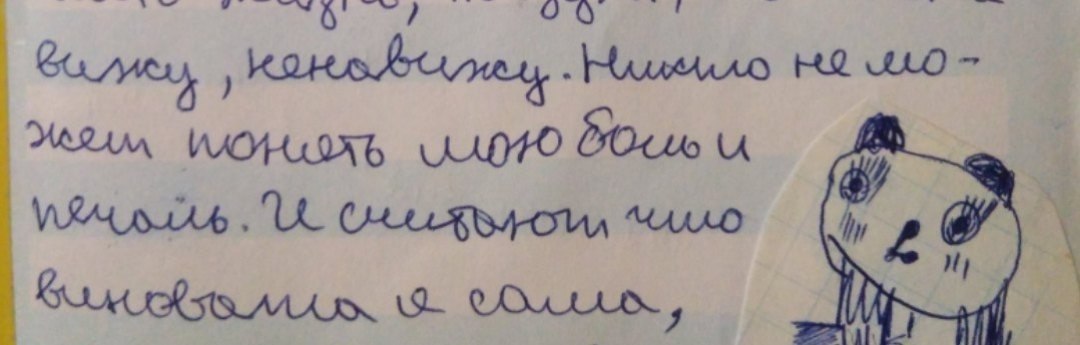 вижу, ненавижу. Никто не мо-
жет понять мою боль и
печаль. И считают что
виновата я сама,